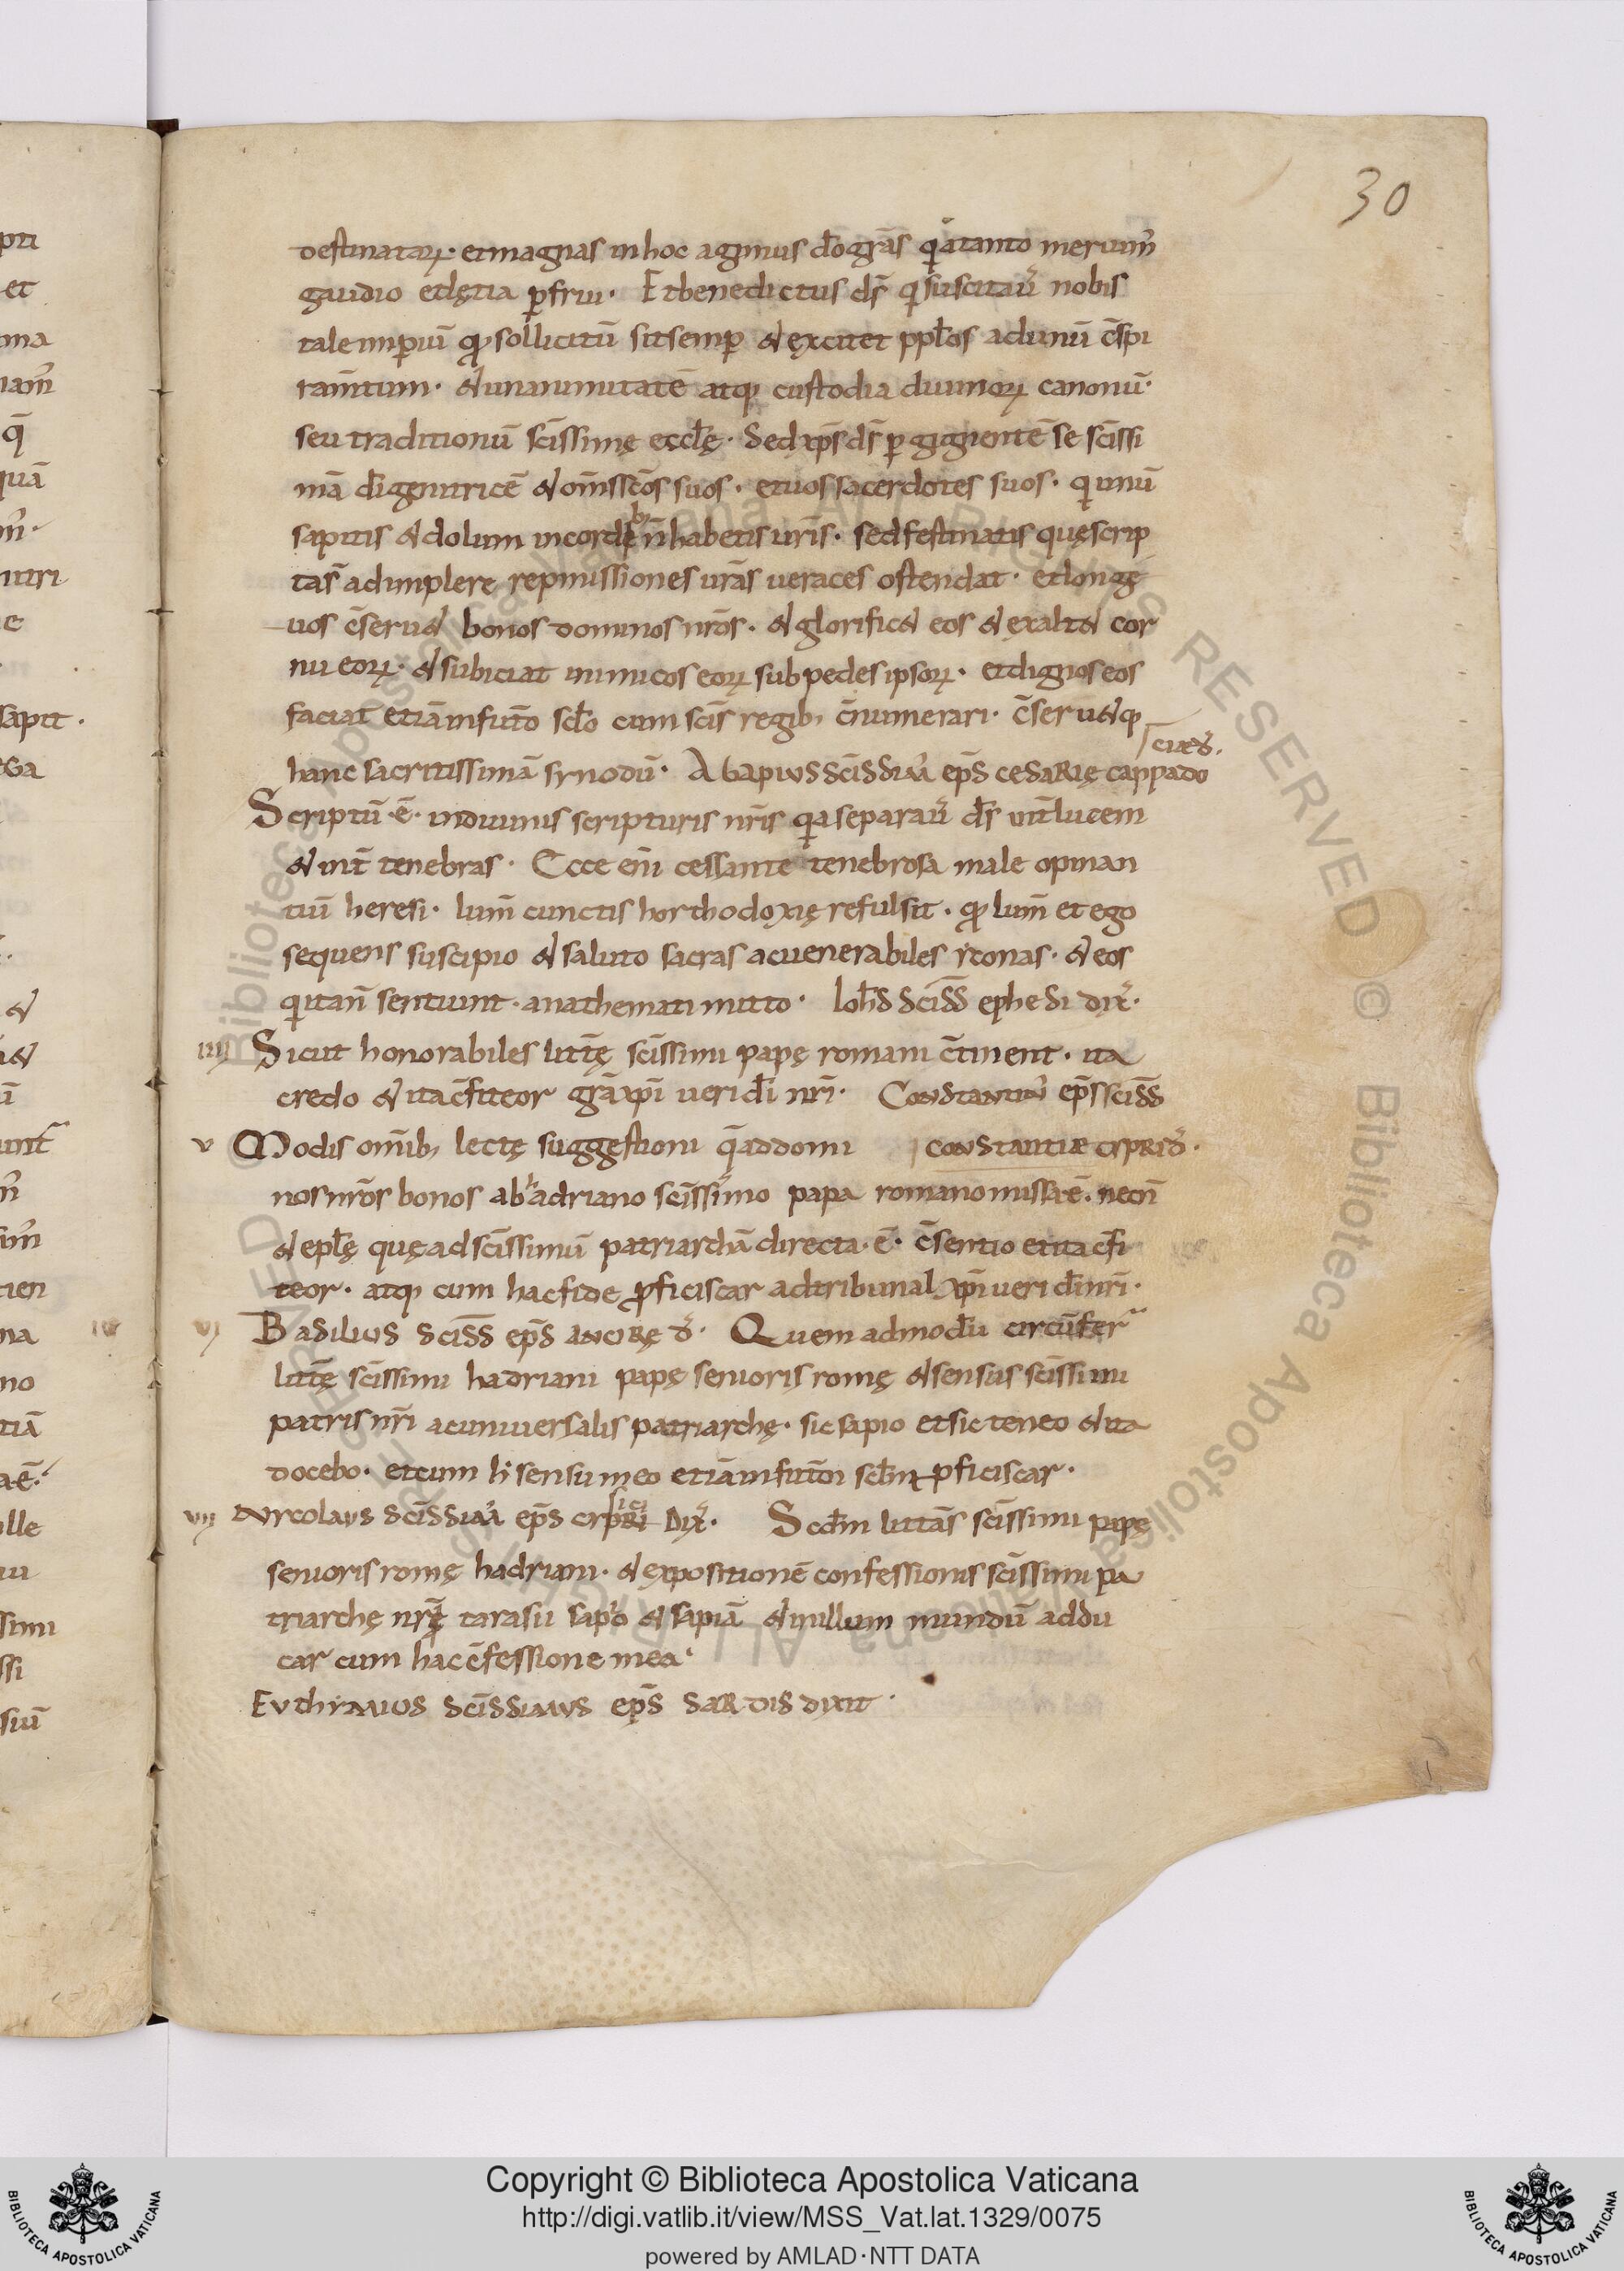 30
destinatarꝝ. et magnas in hoc agimus dō grās qͥa tanto meruim̄
gaudio et lętitia ꝑfrui. Et benedictus dsͬ qͥ suscitaū nobis
tale imꝑiū qđ sollicitū sit semꝑ & excitet pplos ad unū c̄spi
ram̄tum. & unanimitatē atq; custodia diuinorꝝ canonū.
seu traditionū scīssimę ecclę. Sed xp̄s ds̄ ꝑ gignentē se scīssi
mā dī genitricē & om̄s scōs suos. et uos sacerdotes suos. qͥ unū
sapitis & dolum in cordib; n̄ habetis uris. sed festinatis quę scrip
ta s̄ adimplere repmissiones urās ueraces ostendat. et longę
uos c̄seru& bonos dominos nrōs. & glorific& eos & exalt& cor
nu eorꝝ. & subiciat inimicos eorꝝ sub pedes ipsorꝝ. et dignos eos
faciat etiā in futō sclo cum scīs regib; c̄numerari. c̄seru&q;
hanc sacritissimā synodū. Agapius scīssim' ep̄s cesarię cappado
cię d̄.
Scriptū ē. in diuinis scripturis nr̄is qͥa separaū ds̄ int̄ lucem
& int̄ tenebras. Ecce eni cessante tenebrosa male opinan
tiū heresi. lum̄ cunctis horthodoxię refulsit. qđ lum̄ et ego
sequens suscipio & saluto sacras ac uenerabiles yconas. & eos
qͥ ita n̄ sentiunt. anathemati mitto. Ioh̄s scīss ephesi dix̄.
iiii Sicut honorabiles littę scīssimi papę romani c̄tinent. ita
credo & ita c̄fiteor grā xp̄i ueri dī nr̄i. Constantin' ep̄s scīss
v Modis om̄ib; lectę suggestioni q̄ ad domi constantiæ cypri d̄.
nos nrōs bonos ab adriano scīssimo papa romano missa ē. necn̄
& eplę quę ad scīssimū patriarchā directa ē. c̄sentio et ita c̄fi
teor. atq; cum hac fide ꝓficiscar ad tribunal xp̄i ueri dī nr̄i.
vi Basilius scīss ep̄s ancirę d̄. Quem admodū circūfer̄
littę scīssimi hadriani papę senioris romę & sensus scīssimi
patris nr̄i ac uniuersalis patriarchę. sic sapio et sic teneo & ita
docebo. et cum h sensu meo etiā in futōr scl̄m ꝓficiscar.
vii Nycolaus scīssim' ep̄s cypri Dix̄. Scdm littās scīssimi papę
senioris romę hadriani. & expositionē confessionis scīssimi pa
triarchę nr̄i tarasii sapio & sapiā & in illum mundū addu
car cum hac c̄fessione mea.
Euthymius scīssimus ep̄s sardis dixit.
Copyright © Biblioteca Apostolica Vaticana
http://digi.vatlib.it/view/MSS_Vat.lat.1329/0075
powered by AMLAD·NTT DATA
BIBLIOTECA APOSTOLICA VATICANA
BIBLIOTECA APOSTOLICA VATICANA